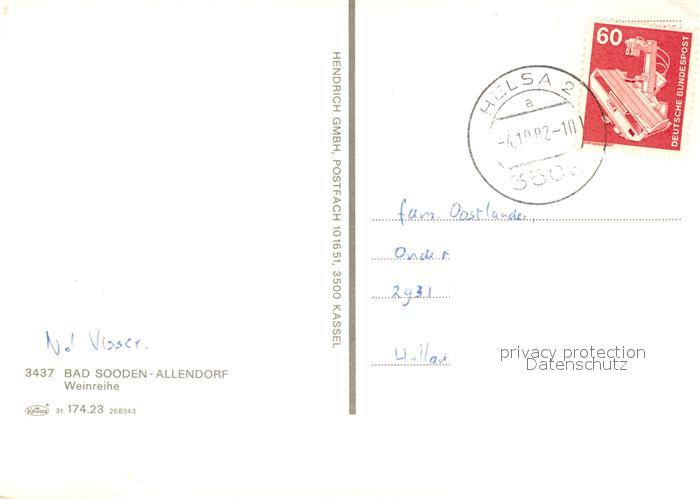 60
DEUTSCHE BUNDESPOST
HELSA 2
a
-4.10.82-10
3501
HENDRICH GMBH, POSTFACH 101651, 3500 KASSEL
fam. Oostlander,
Onder
2931
Hollan
privacy protection
Datenschutz
Visser.
3437 BAD SOODEN-ALLENDORF
Weinreihe
31. 174.23 268343